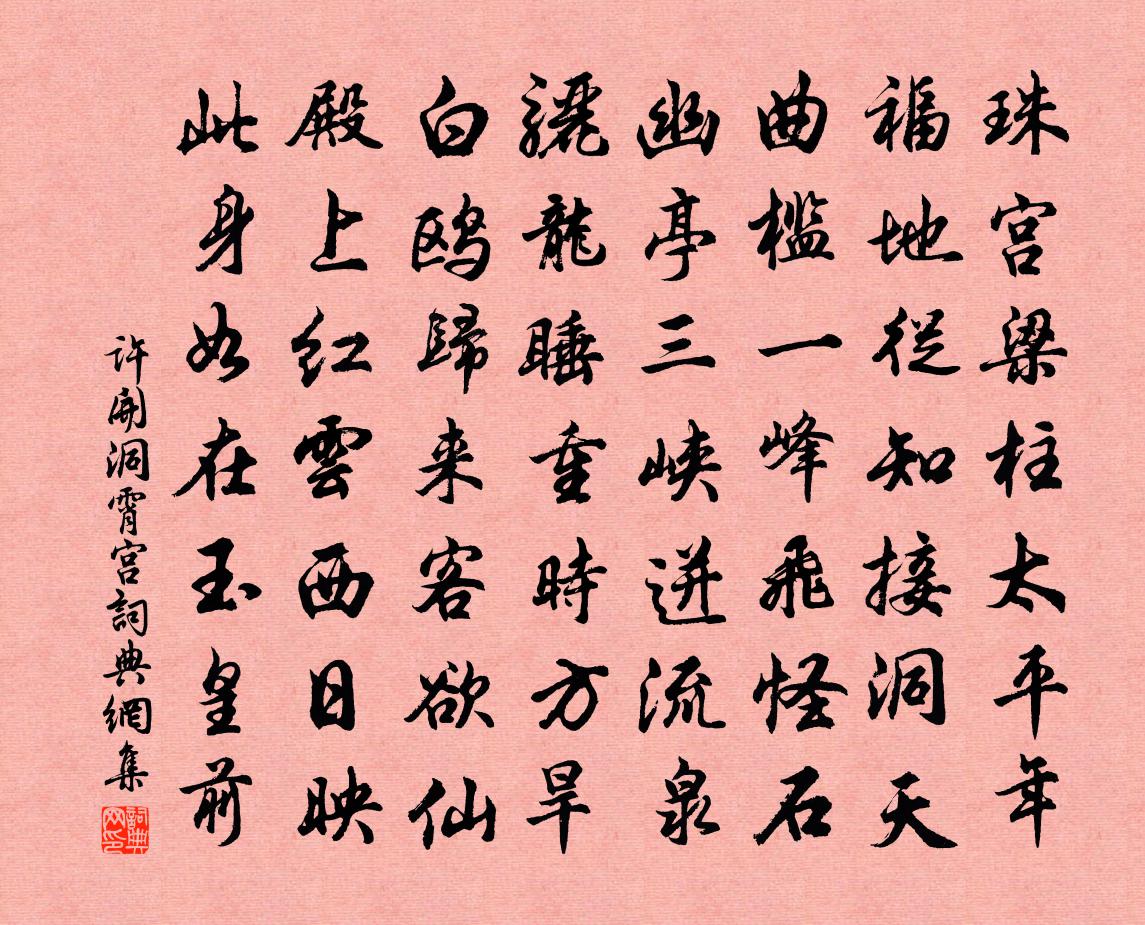 珠宫梁柱太平年
福地従知接洞天
曲檻一峰飛怪石
幽亭三峽迸流泉
驪龍睡重時方旱
白鸥歸来客欲仙
殿上紅雲西日映
此身如在玉皇前
許開洞霄宫詞典網集
詞典网印